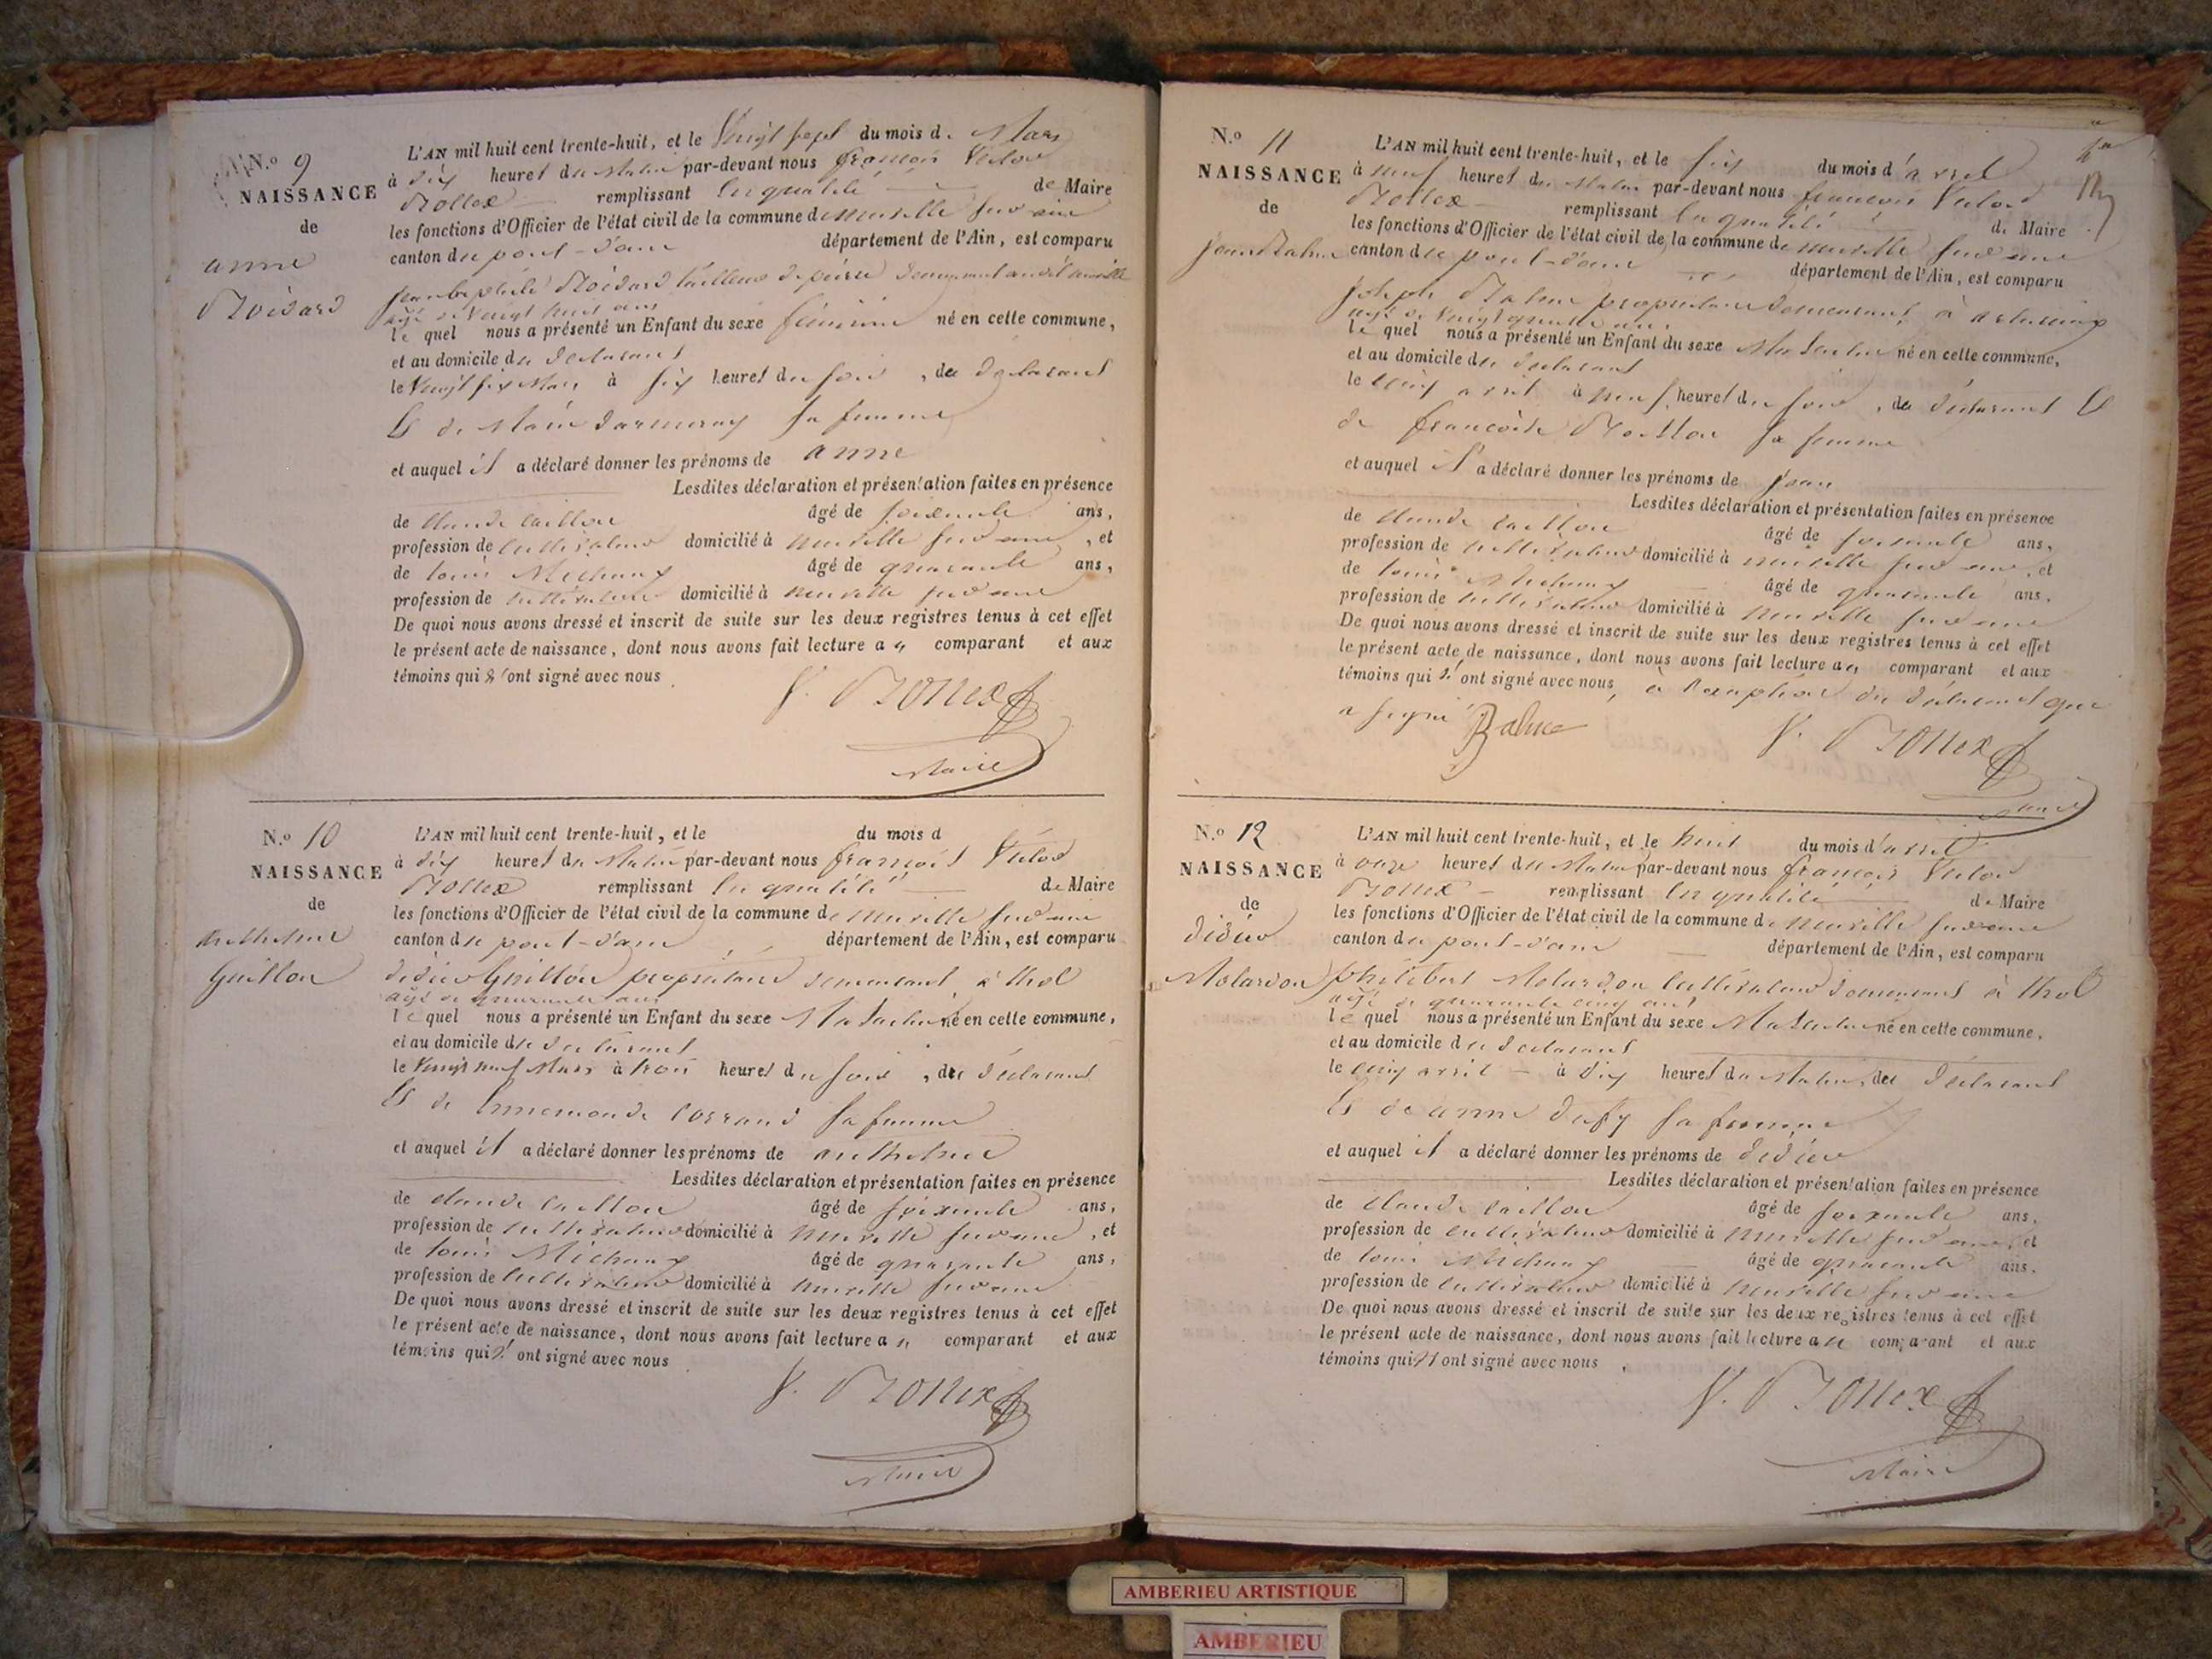 N.º 9
NAISSANCE
de
anne
L'AN mil huit cent trente-huit, et le Vingt sept du mois de Mars
à dix heures du Matin par-devant nous françois Victor
remplissant en qualité de Maire
les fonctions d'Officier de l'état civil de la commune de neuville sur ain
canton du pont-d'ain département de l'Ain, est comparu
jean baptiste tailleur de pierre demeurant audit neuville
agé de Vingt huit ans
le quel nous a présenté un Enfant du sexe féminin né en cette commune,
et au domicile du declarant
le Vingt six Mars à six heures du soir, du declarant
Et de sa femme
et auquel il a déclaré donner les prénoms de anne
Lesdites déclaration et présentation faites en présence
de Claude âgé de soixante ans,
profession de cultivateur domicilié à neuville sur ain, et
de louis Michaux âgé de quarante ans,
profession de cultivateur domicilié à neuville sur ain
De quoi nous avons dressé et inscrit de suite sur les deux registres tenus à cet effet
le présent acte de naissance, dont nous avons fait lecture au comparant et aux
témoins qui n'ont signé avec nous
Maire
N.º 10
NAISSANCE
de
anthelme
Guillon
L'AN mil huit cent trente-huit, et le du mois d
à dix heures du Matin par-devant nous françois Victor
remplissant en qualité de Maire
les fonctions d'Officier de l'état civil de la commune de neuville sur ain
canton du pont-d'ain département de l'Ain, est comparu
didier Guillon propriétaire demeurant à thol
agé de quarante ans
le quel nous a présenté un Enfant du sexe Masculin né en cette commune,
et au domicile du declarant
le Vingt neuf Mars à trois heures du soir, du déclarant
Et de sa femme
et auquel il a déclaré donner les prénoms de anthelme
Lesdites déclaration et présentation faites en présence
de claude âgé de soixante ans,
profession de cultivateur domicilié à neuville sur ain, et
de louis Michaux âgé de quarante ans,
profession de cultivateur domicilié à neuville sur ain
De quoi nous avons dressé et inscrit de suite sur les deux registres tenus à cet effet
le présent acte de naissance, dont nous avons fait lecture au comparant et aux
témoins qui n'ont signé avec nous
Maire
N.º 11
NAISSANCE
de
jean Balme
L'AN mil huit cent trente-huit, et le six du mois d'avril
à neuf heures du Matin par-devant nous françois Victor
remplissant en qualité de Maire
les fonctions d'Officier de l'état civil de la commune de neuville sur ain
canton du pont-d'ain département de l'Ain, est comparu
joseph Balme propriétaire demeurant à
agé de Vingt quatre ans
le quel nous a présenté un Enfant du sexe Masculin né en cette commune,
et au domicile du declarant
le cinq avril à neuf heures du soir, du déclarant Et
de françoise sa femme
et auquel il a déclaré donner les prénoms de jean
Lesdites déclaration et présentation faites en présence
de claude âgé de soixante ans,
profession de cultivateur domicilié à neuville sur ain, et
de louis Michaux âgé de quarante ans,
profession de cultivateur domicilié à neuville sur ain
De quoi nous avons dressé et inscrit de suite sur les deux registres tenus à cet effet
le présent acte de naissance, dont nous avons fait lecture au comparant et aux
témoins qui n'ont signé avec nous, à l'exception du déclarant qui
a signé Balme
Maire
N.º 12
NAISSANCE
de
didier
Molardon
L'AN mil huit cent trente-huit, et le huit du mois d'avril
à onze heures du Matin par-devant nous françois Victor
remplissant en qualité de Maire
les fonctions d'Officier de l'état civil de la commune de neuville sur ain
canton du pont-d'ain département de l'Ain, est comparu
philibert Molardon cultivateur demeurant à thol
agé de quarante cinq ans
le quel nous a présenté un Enfant du sexe Masculin né en cette commune,
et au domicile du declarant
le cinq avril à dix heures du Matin, du déclarant
Et de anne sa femme
et auquel il a déclaré donner les prénoms de didier
Lesdites déclaration et présentation faites en présence
de claude âgé de soixante ans,
profession de cultivateur domicilié à neuville sur ain, et
de louis Michaux âgé de quarante ans,
profession de cultivateur domicilié à neuville sur ain
De quoi nous avons dressé et inscrit de suite sur les deux registres tenus à cet effet
le présent acte de naissance, dont nous avons fait lecture au comparant et aux
témoins qui n'ont signé avec nous
Maire
AMBERIEU ARTISTIQUE
AMBERIEU